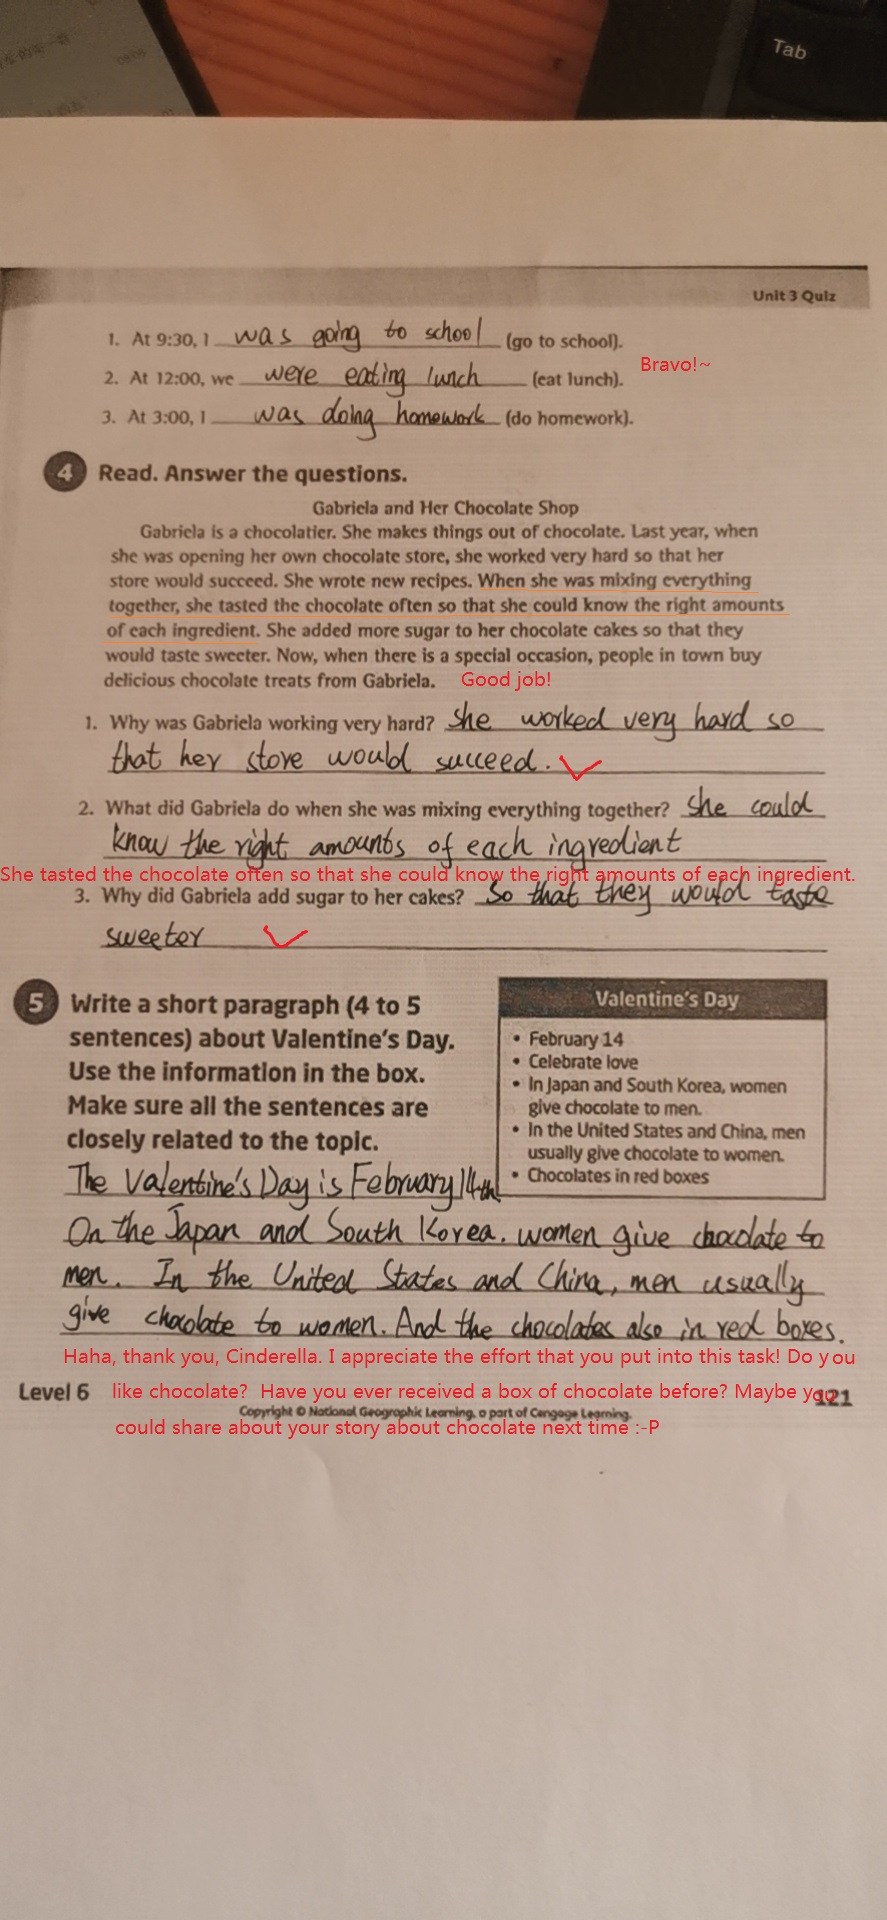 Tab
Unit 3 Quiz
1. At 9:30, I was going to school (go to school).
Bravo!~
2. At 12:00, we were eating lunch (eat lunch).
3. At 3:00, I was doing homework (do homework).
4 Read. Answer the questions.
Gabriela and Her Chocolate Shop
Gabriela is a chocolatier. She makes things out of chocolate. Last year, when
she was opening her own chocolate store, she worked very hard so that her
store would succeed. She wrote new recipes. When she was mixing everything
together, she tasted the chocolate often so that she could know the right amounts
of each ingredient. She added more sugar to her chocolate cakes so that they
would taste sweeter. Now, when there is a special occasion, people in town buy
delicious chocolate treats from Gabriela. Good job!
1. Why was Gabriela working very hard? She worked very hard so
that her store would succeed.
2. What did Gabriela do when she was mixing everything together? She could
know the right amounts of each ingredient
She tasted the chocolate often so that she could know the right amounts of each ingredient.
3. Why did Gabriela add sugar to her cakes? So that they would taste
sweeter
5 Write a short paragraph (4 to 5
sentences) about Valentine's Day.
Use the information in the box.
Make sure all the sentences are
closely related to the topic.
Valentine's Day
• February 14
• Celebrate love
• In Japan and South Korea, women
give chocolate to men.
• In the United States and China, men
usually give chocolate to women.
• Chocolates in red boxes
The Valentine's Day is February 14th
On the Japan and South Korea. women give chocolate to
men. In the United States and China, men usually
give chocolate to women. And the chocolates also in red boxes.
Haha, thank you, Cinderella. I appreciate the effort that you put into this task! Do you
like chocolate? Have you ever received a box of chocolate before? Maybe you
could share about your story about chocolate next time :-P
Level 6
121
Copyright © National Geographic Learning, a part of Cengage Learning.